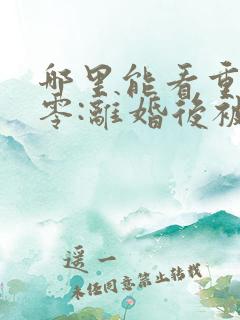 哪里能看重
零:離婚後被
遥一
未经同意禁止转载